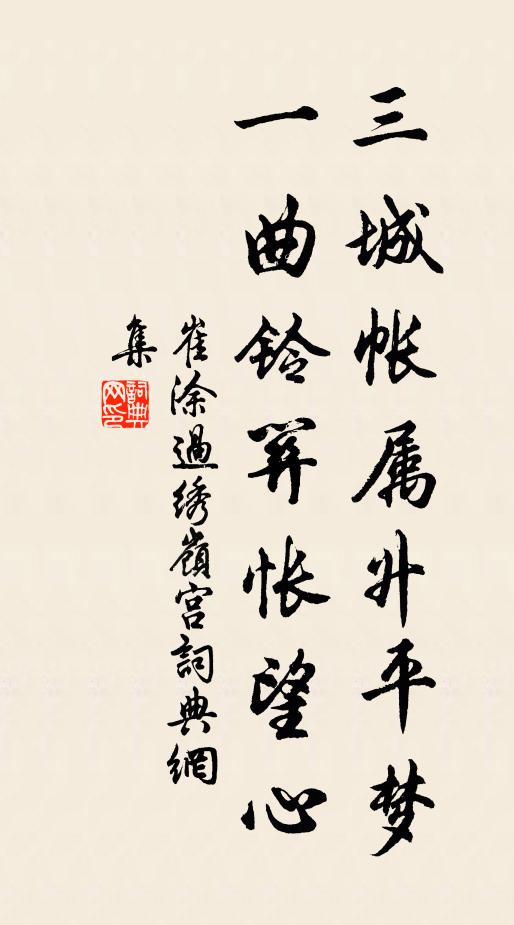 三城帐属升平梦
一曲鈴关怅望心
崔涂過绣嶺宫詞典網
集
詞典网印